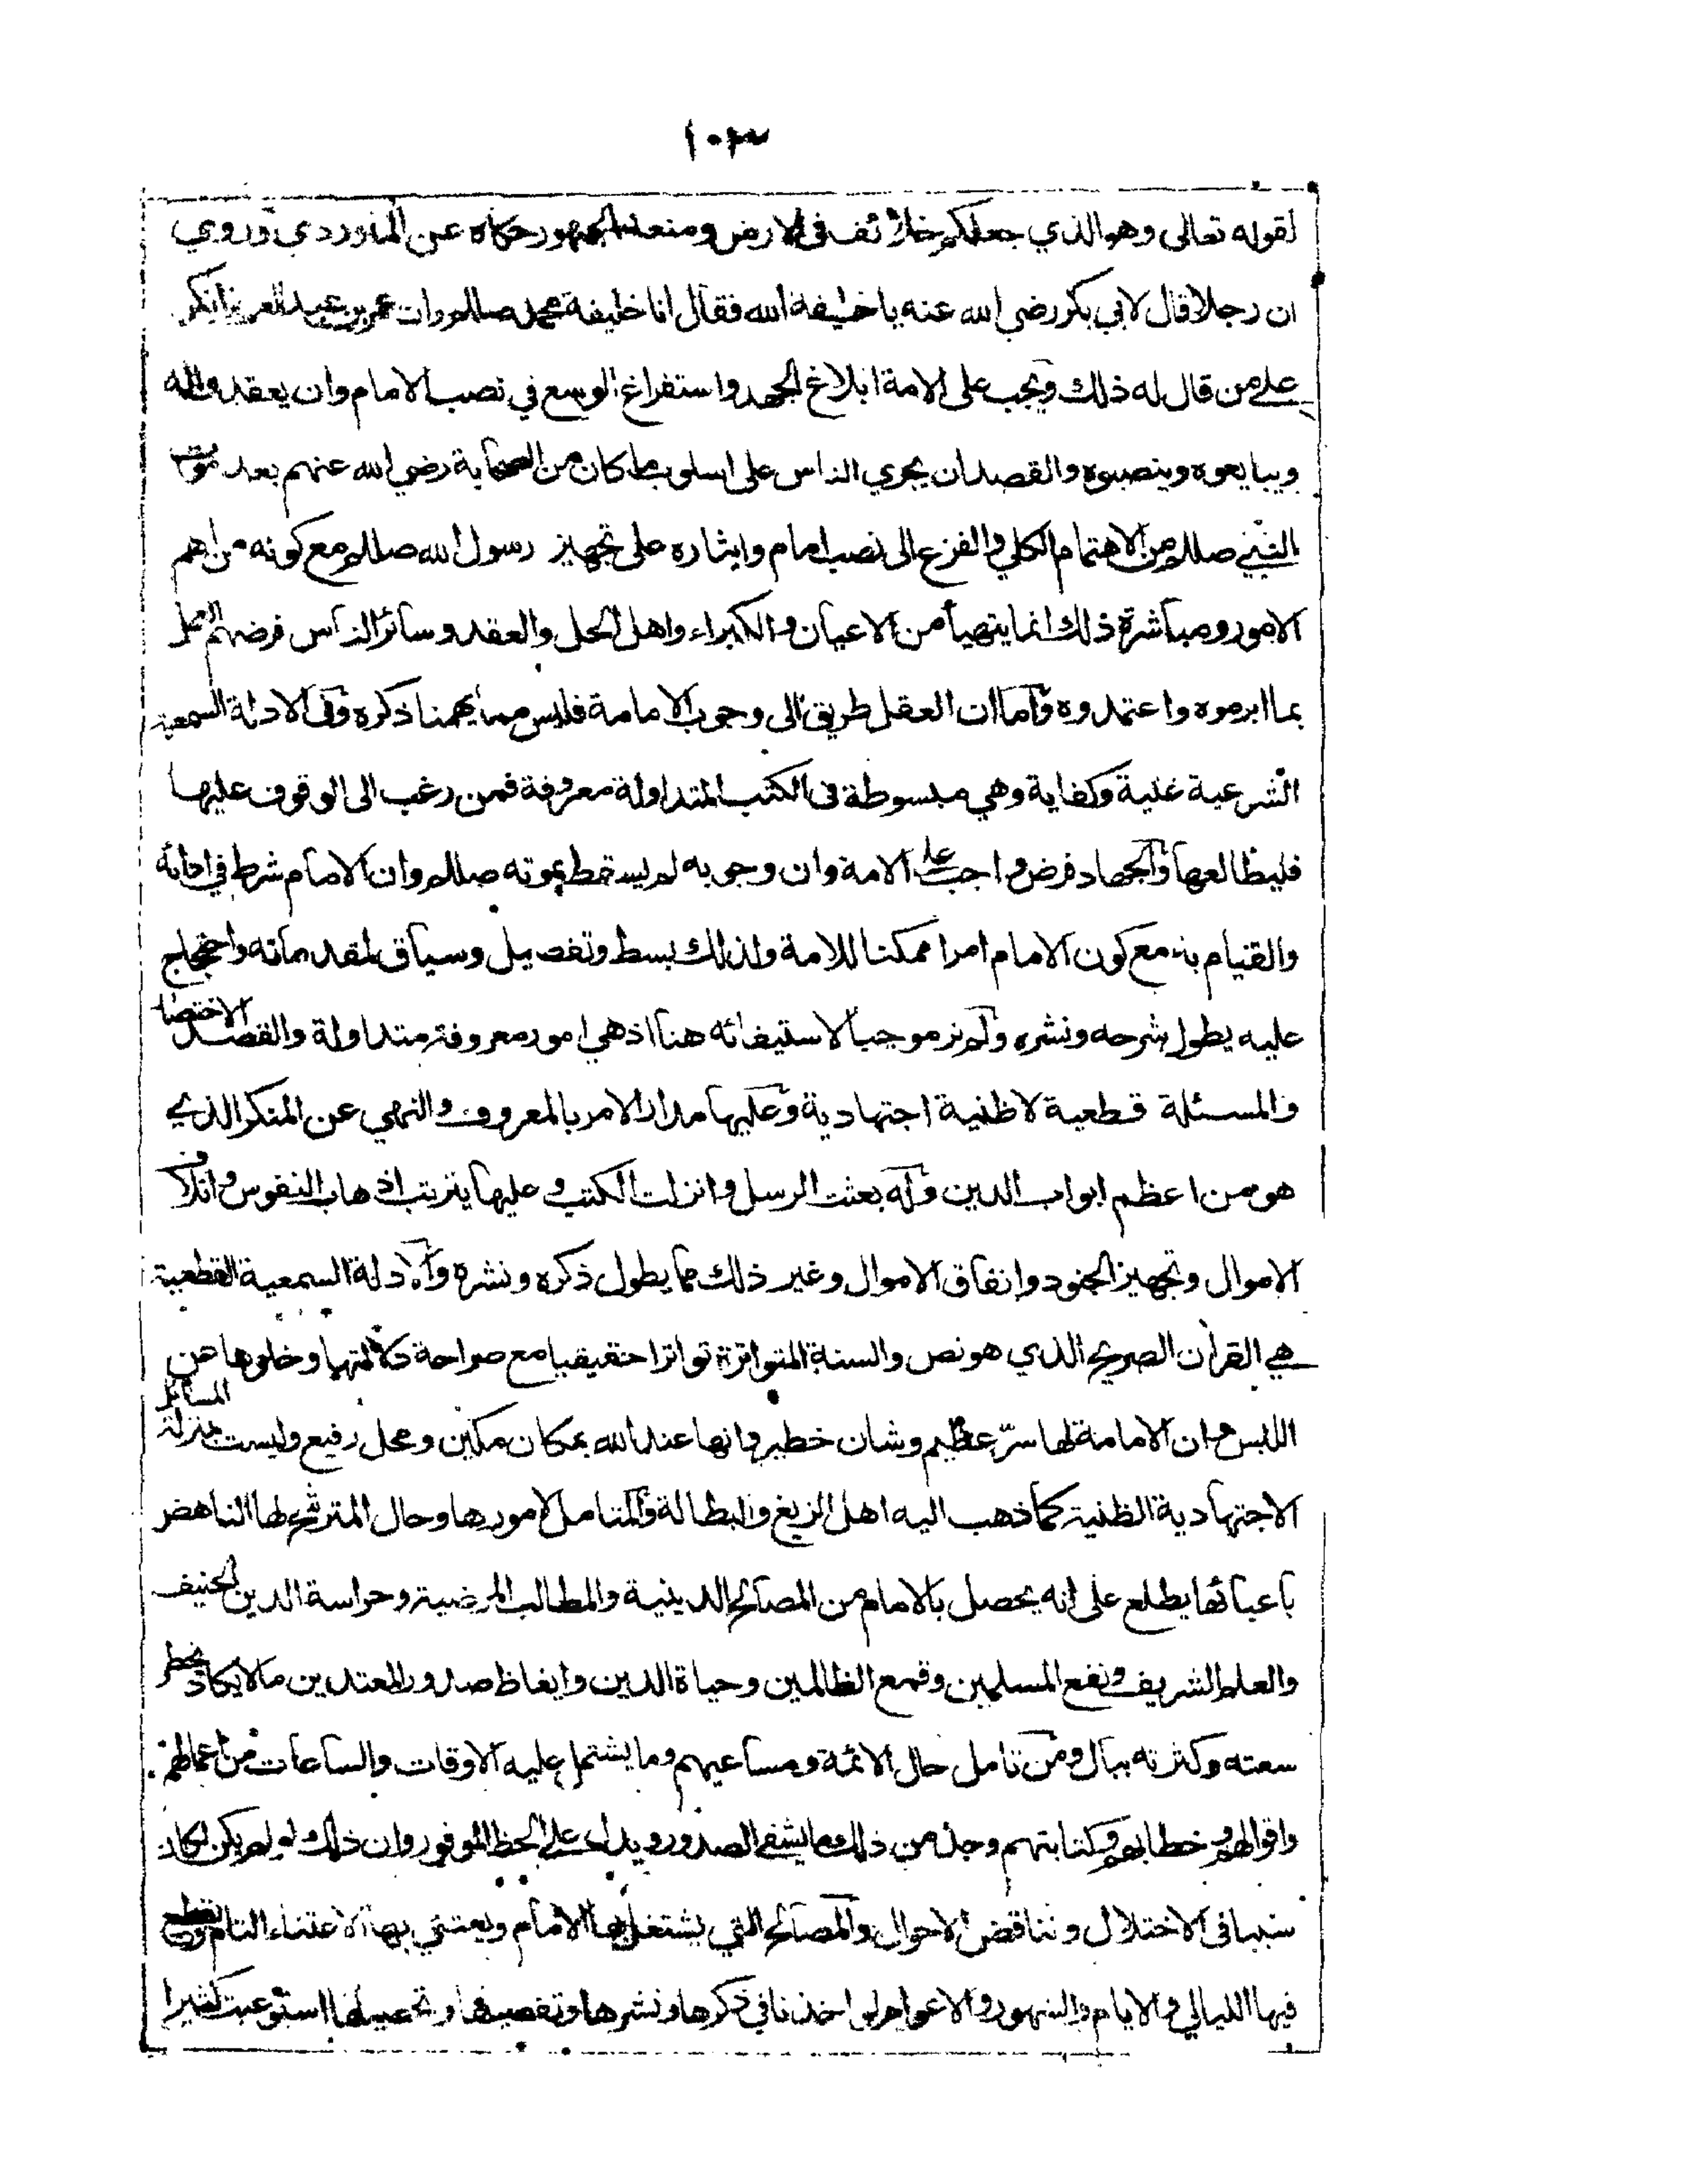 ١٠٣
لقوله تعالى وهو الذي جعلكم خلائف في الارض ومنعه الجمهور حكاه عن الماوردي وروي
ان رجلا قال لابي بكر رضي الله عنه يا خليفة الله فقال انا خليفة محمد صللم وان عمر بن عبد العزيز انكر
على من قال له ذلك ويجب على الامة ابلاغ الجهد واستفراغ الوسع في نصب الامام وان يعقد واله
ويبايعوه وينصبوه والقصد ان يجري الناس على اسلوب ما كان من الصحابة رضي الله عنهم بعد موت
النبي صللم من الاهتمام الكلي والفزع الى نصب امام وايثاره على تجهيز رسول الله صللم مع كونه من اهم
الامور ومباشرة ذلك انما يتهيأ من الاعيان والكبراء واهل الحل والعقد وسائر الناس فرضهم العمل
بما ابرموه واعتمدوه واما ان العقل طريق الى وجوب الامامة فليس مما يهمنا ذكره وفي الادلة السمعية
الشرعية غنية وكفاية وهي مبسوطة في الكتب المتداولة معروفة فمن رغب الى الوقوف عليها
فليطالعها والجهاد فرض واجب على الامة وان وجوبه لم يسقط بموته صللم وان الامام شرط في ادائه
والقيام به مع كون الامام امرا ممكنا للامة ولذلك بسط وتفصيل وسياق لمقدماته واحتجاج
عليه يطول شرحه ونشره ولم نر موجبا لاستيفائه هنا اذ هي امور معروفة متداولة والقصد الاختصا
والمسئلة قطعية لا ظنية اجتهادية وعليها مدار الامر بالمعروف والنهي عن المنكر الذي
هو من اعظم ابواب الدين وله بعثت الرسل وانزلت الكتب وعليها يترتب اذهاب النفوس واتلاف
الاموال وتجهيز الجنود وانفاق الاموال وغير ذلك مما يطول ذكره ونشره والادلة السمعية القطعية
هي القرآن الصريح الذي هو نص والسنة المتواترة تواترا حقيقيا مع صراحة دلالتهما وخلوها عن
اللبس وان الامامة لها سر عظيم وشان خطير وانها عند الله بمكان مكين ومحل رفيع وليست بمنزلة المسائل
الاجتهادية الظنية كما ذهب اليه اهل الزيغ والبطالة والمتامل لامورها وحال المترشح لها الناهض
باعبائها يطلع على انه يحصل بالامام من المصالح الدينية والمطالب المرضية وحراسة الدين الحنيف
والعلم الشريف ونفع المسلمين وقمع الظالمين وحياة الدين وايغاظ صدور المعتدين ما لا يكاد يخطر
سعته وكثرته ببال ومن تامل حال الائمة ومساعيهم وما يشتمل عليه الاوقات والساعات من اعمالهم
واقوالهم وخطابهم وكتابتهم وجد من ذلك ما يشفي الصدور ويدل على الحظ الموفور وان ذلك لو لم يكن لكان
سببا في الاختلال وتناقض الاحوال والمصالح التي يشتغل بها الامام ويعتني بها الاعتناء التام ويقطع
فيها الليالي والايام والشهور والاعوام لو اخذنا في ذكرها ونشرها وتفصيلها وتحصيلها استوعبت كثيرا